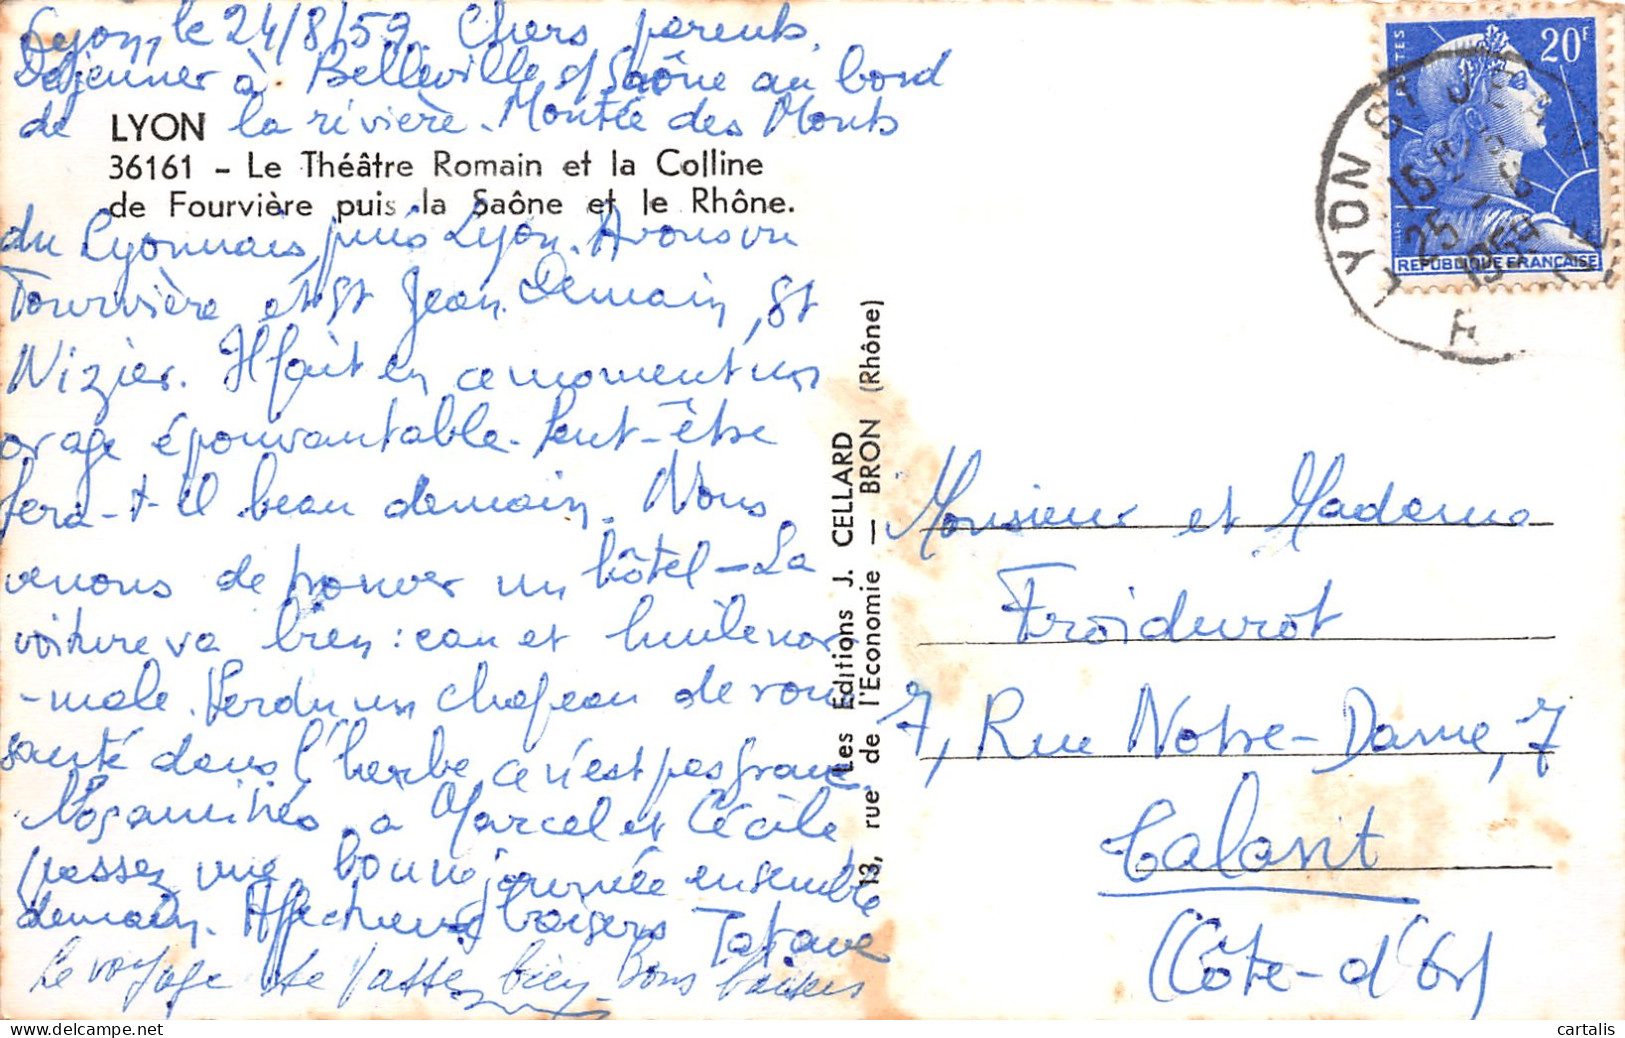 Lyon, le 24/8/59. Chers parents,
Déjeuner à Belleville s/Saône au bord
de la rivière. Montée des Monts
LYON
36161 - Le Théâtre Romain et la Colline
de Fourvière puis la Saône et le Rhône.
du Lyonnais, puis Lyon. Avons vu
Fourvière et St Jean. Demain, St
Nizier. Il fait en ce moment un
orage épouvantable. Peut-être
fera-t-il beau demain. Nous
venons de trouver un hôtel - La
voiture va bien : eau et huile nor
-male. Perdu un chapeau de roue
sauté dans l'herbe, ce n'est pas grave.
Nos amitiés à Marcel et Cécile,
passez une bonne journée ensemble
demain. Affectueux baisers Tatave
Le voyage se passe bien. Bons baisers
13, rue de l'Economie — BRON (Rhône)
Les Editions J. CELLARD
POSTES
20F
REPUBLIQUE FRANÇAISE
LYON ST JEAN
15 H
25 - 8
1959
RHONE
Monsieur et Madame
Froidurot
7, Rue Notre-Dame, 7
Talant
(Côte-d'Or)
cartalis